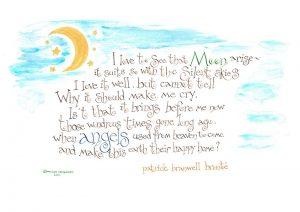 I love to see that Moon arise -
it suits so with the Silent skies
I love it well, but cannot tell
Why it should make me cry,
Is it that it brings before me now
those wondrous times gone long ago
when angels used from heaven to come
and make this earth their happy home?
patrick branwell brontë